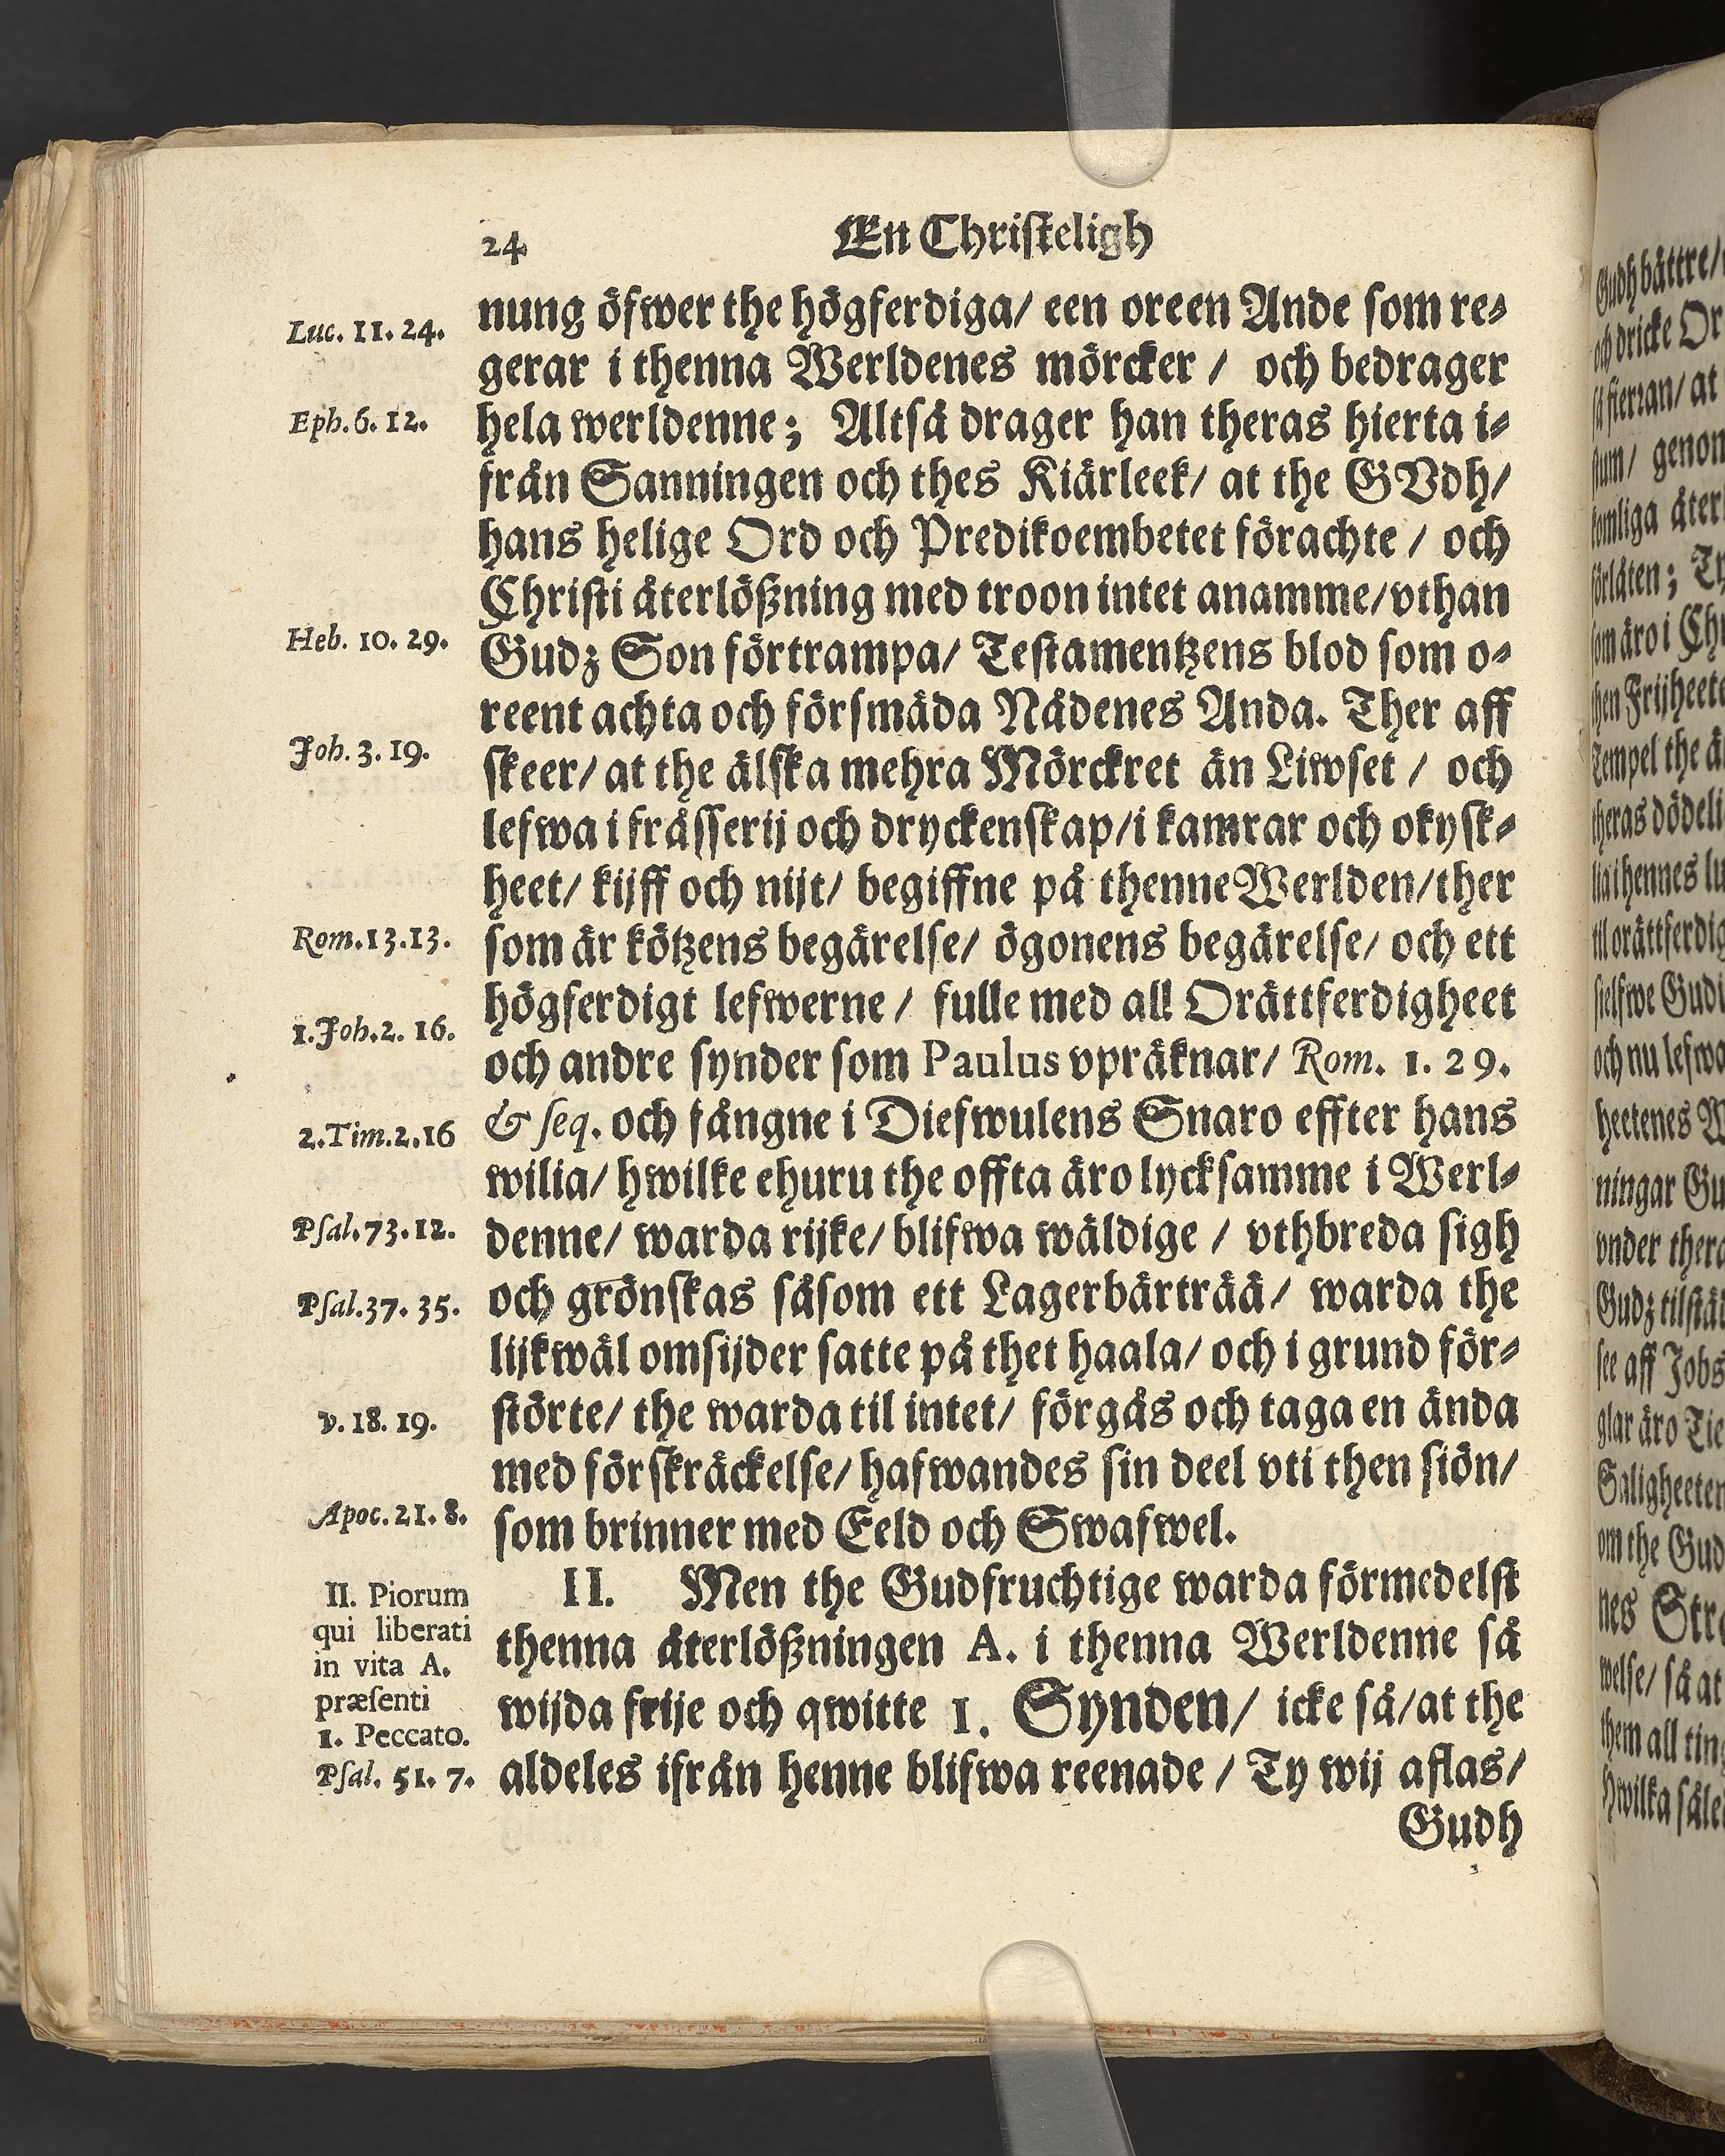 24 En Christeligh
nung öfwer the högferdiga/ een oreen Ande som re-
gerar i thenna Werldenes mörcker / och bedrager
hela werldenne; Altså drager han theras hierta i-
från Sanningen och thes Kiärleek/ at the GVdh/
hans helige Ord och Predikoembetet förachte / och
Christi återlößning med troon intet anamme/vthan
Gudz Son förtrampa/ Testamentzens blod som o-
reent achta och försmäda Nådenes Anda. Ther aff
skeer/ at the älska mehra Mörckret än Liwset / och
lefwa i frässerij och dryckenskap/i kamrar och okysk-
heet/ kijff och nijt/ begiffne på thenne Werlden/ther
som är kötzens begärelse/ ögonens begärelse/ och ett
högferdigt lefwerne / fulle med all Orättferdigheet
och andre synder som Paulus vpräknar/ Rom. 1. 29.
& seq. och fångne i Diefwulens Snaro effter hans
wilia/ hwilke ehuru the offta äro lycksamme i Werl-
denne/ warda rijke/ blifwa wäldige / vthbreda sigh
och grönskas såsom ett Lagerbärträä/ warda the
lijkwäl omsijder satte på thet haala/ och i grund för-
störte/ the warda til intet/ förgås och taga en ända
med förskräckelse/ hafwandes sin deel vti then siön/
som brinner med Eeld och Swafwel.
II. Men the Gudfruchtige warda förmedelst
thenna återlößningen A. i thenna Werldenne så
wijda frije och qwitte 1. Synden/ icke så/at the
aldeles ifrån henne blifwa reenade / Ty wij aflas/
Gudh
Luc. 11. 24.
Eph. 6. 12.
Heb. 10. 29.
Joh. 3. 19.
Rom. 13. 13.
1. Joh. 2. 16.
2. Tim. 2. 16
Psal. 73. 12.
Psal. 37. 35.
v. 18. 19.
Apoc. 21. 8.
II. Piorum
qui liberati
in vita A.
præsenti
1. Peccato.
Psal. 51. 7.
Gudh bättre/
och dricke Or
så fierran/ at
stum/ genom
komliga åter
förlåten; Ty
som äro i Chr
then Frijheete
Tempel the ä
theras dödeli
lia i hennes lu
til orättferdig
sielfwe Gudi
och nu lefwa
heetenes W
ningar Gu
vnder thera
Gudz tilstä
see aff Jobs
glar äro Tie
Saligheeten
om the Gud
nes Stra
welse/ så at
them all ting
Hwilka såle